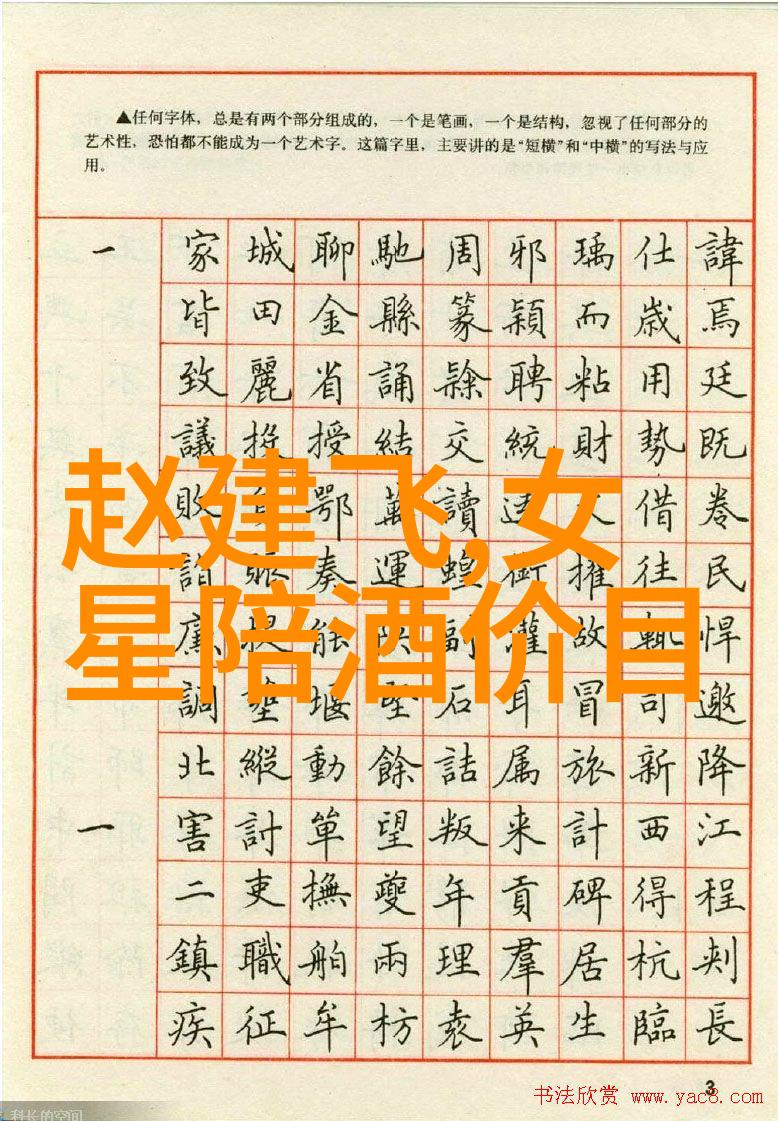 ▲任何字体，总是有两个部分组成的，一个是笔画，一个是结构，忽视了任何部分的
艺术性，恐怕都不能成为一个艺术字。这篇字里，主要讲的是“短横”和“中横”的写法与应
用。
一 家 城 聊 馳 周 邪 瑀 仕 諱
皆 田 金 縣 篆 潁 而 歲 焉
致 麗 省 誦 滁 聘 粘 用 廷
議 投 授 結 交 統 財 勢 既
敗 鄂 萬 讀 借 卷
詣 賑 奏 運 蝗 衝 擁 往 民
廉 提 能 副 灌 故 輒 悍
調 堰 堅 石 耳 冒 司 邀
北 縱 動 餘 詰 属 旅 新 降
一 害 討 單 望 叛 来 計 西 江
二 吏 撫 夔 年 貢 碑 得 程
鎮 職 舶 兩 理 羣 居 杭
疾 征 牟 枋 袁 英 生 臨 長
赵建飞,女
星陪酒价目
3
书法欣赏 www.yac8.com
科长的空间